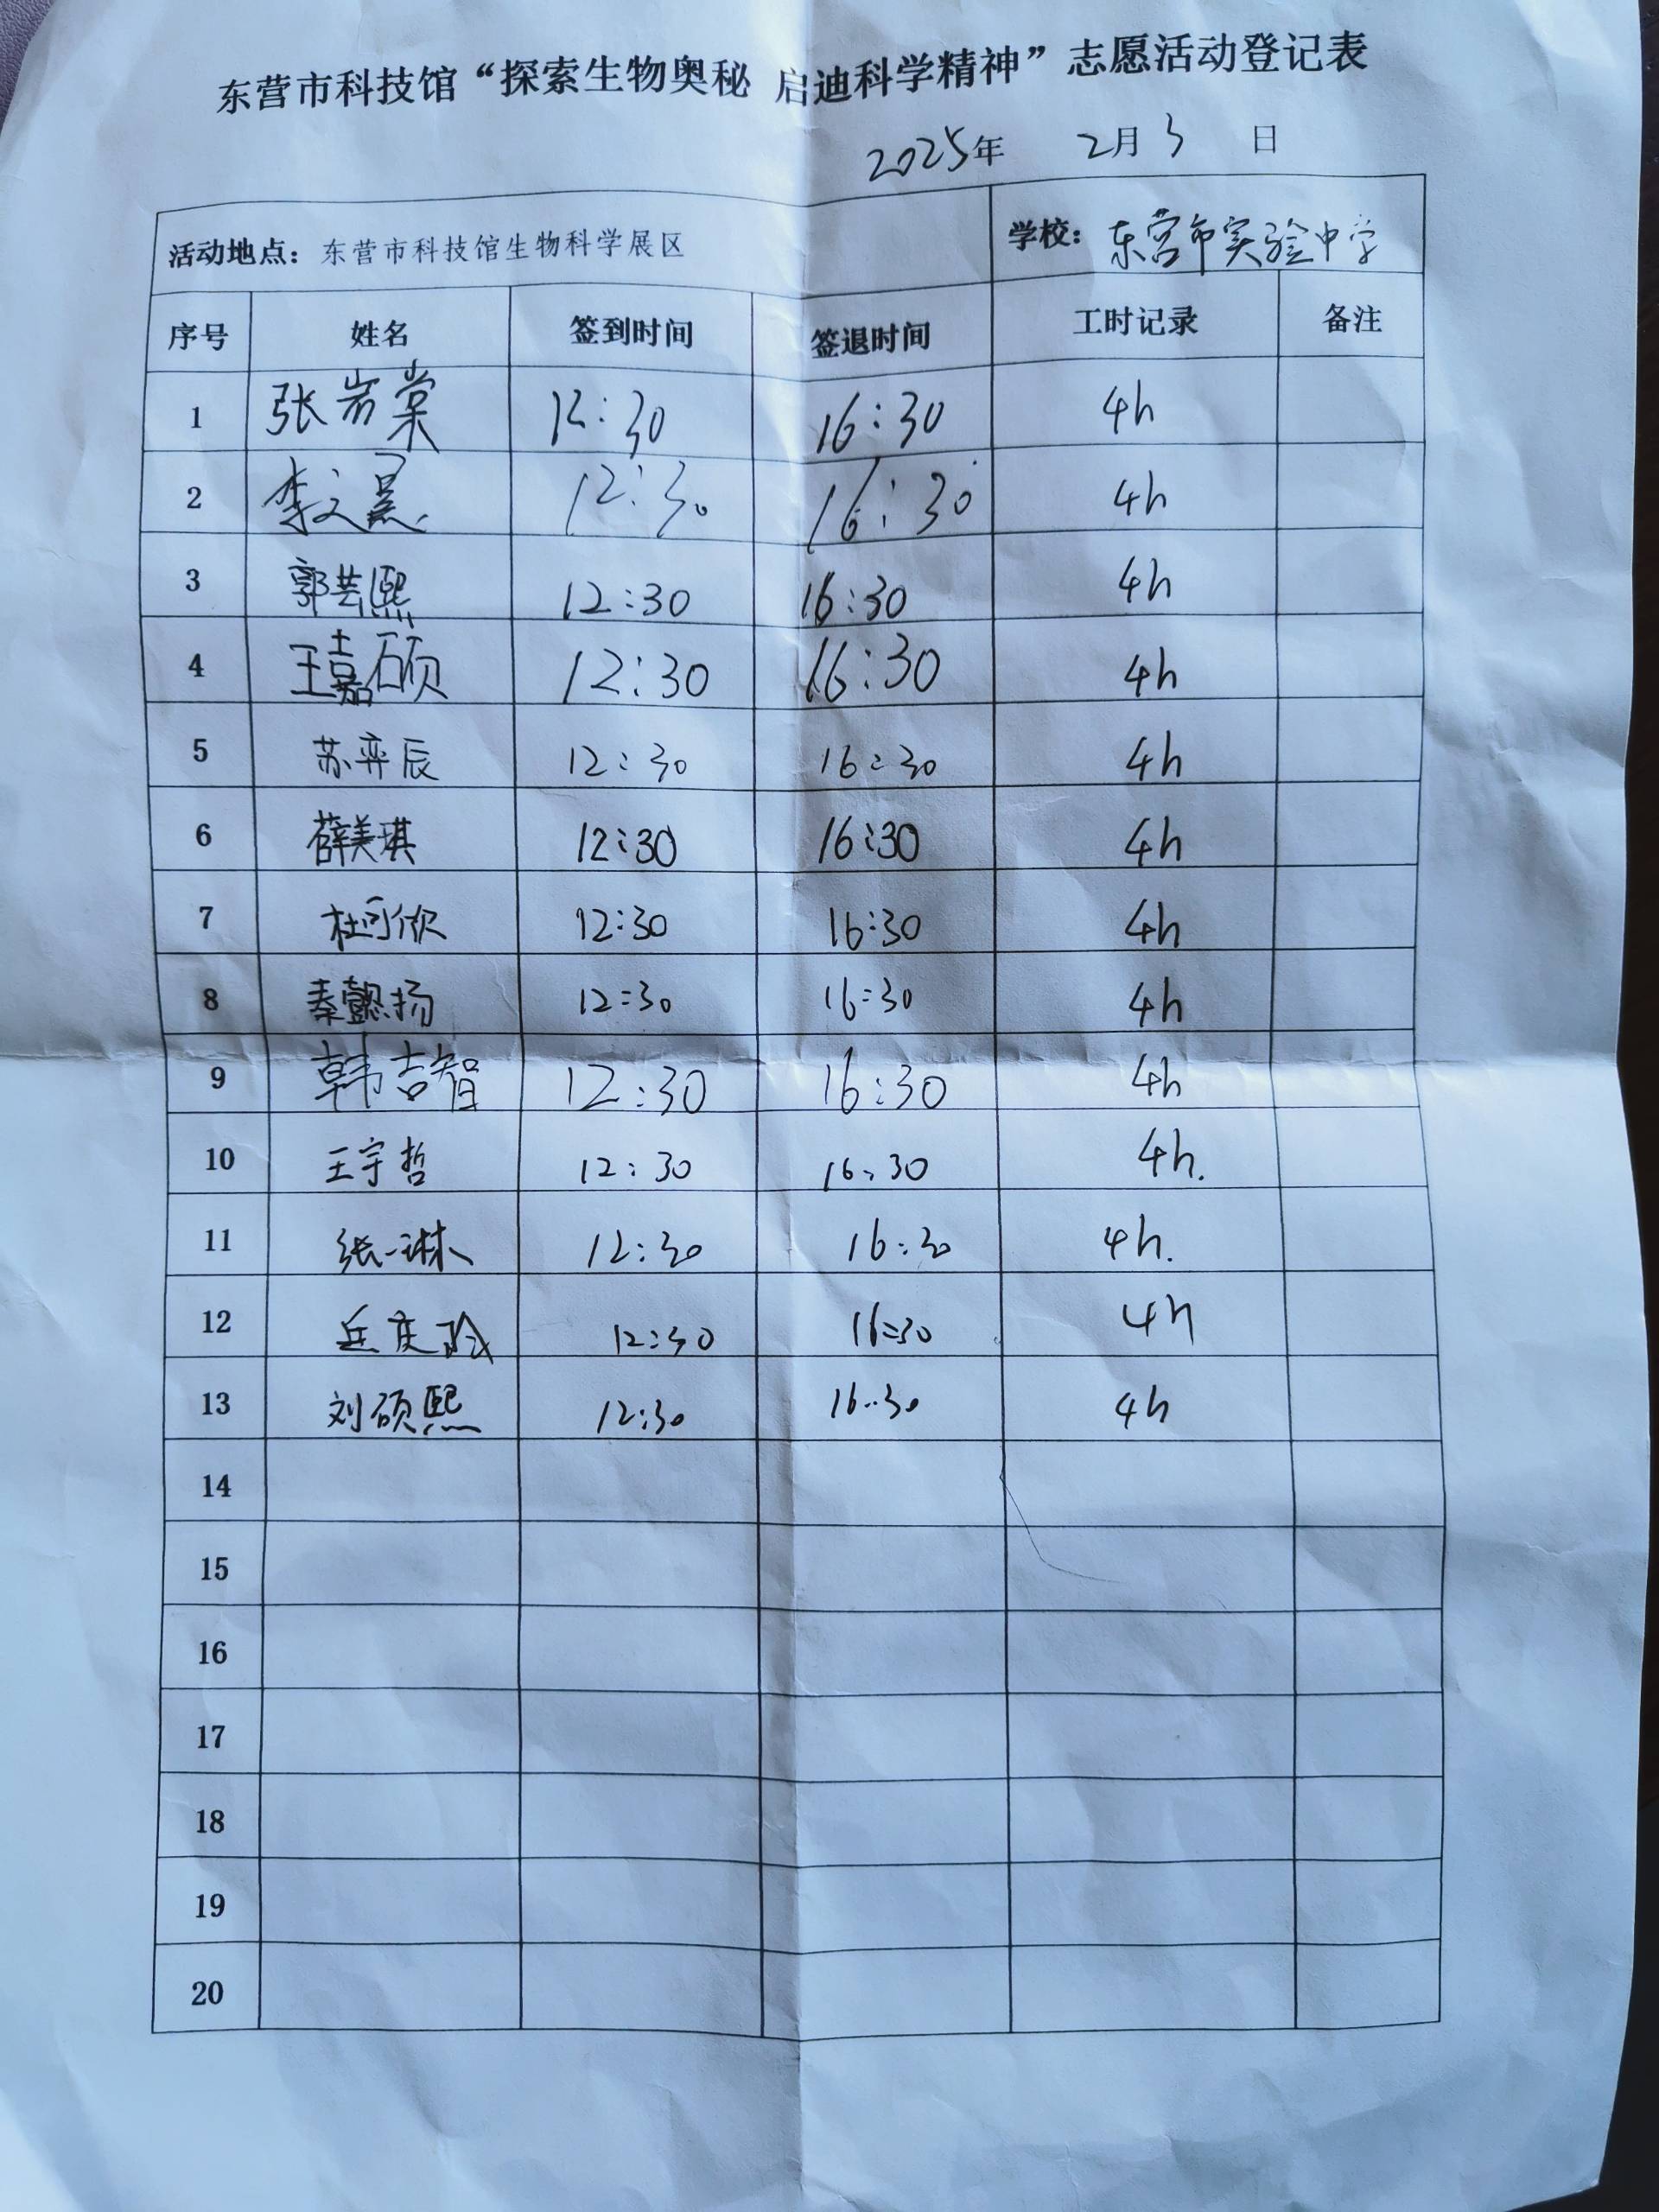 东营市科技馆“探索生物奥秘 启迪科学精神”志愿活动登记表
2025年 2月3 日
活动地点：东营市科技馆生物科学展区 学校：东营市实验中学
序号 姓名 签到时间 签退时间 工时记录 备注
1 张岩棠 12:30 16:30 4h
2 李文 12:30 16:30 4h
3 郭芸熙 12:30 16:30 4h
4 王嘉硕 12:30 16:30 4h
5 苏弈辰 12:30 16:30 4h
6 薛美琪 12:30 16:30 4h
7 杜可欣 12:30 16:30 4h
8 秦懿扬 12:30 16:30 4h
9 韩吉智 12:30 16:30 4h
10 王宇哲 12:30 16:30 4h.
11 张一琳 12:30 16:30 4h.
12 12:30 16:30 4h
13 刘硕熙 12:30 16:30 4h
14
15
16
17
18
19
20